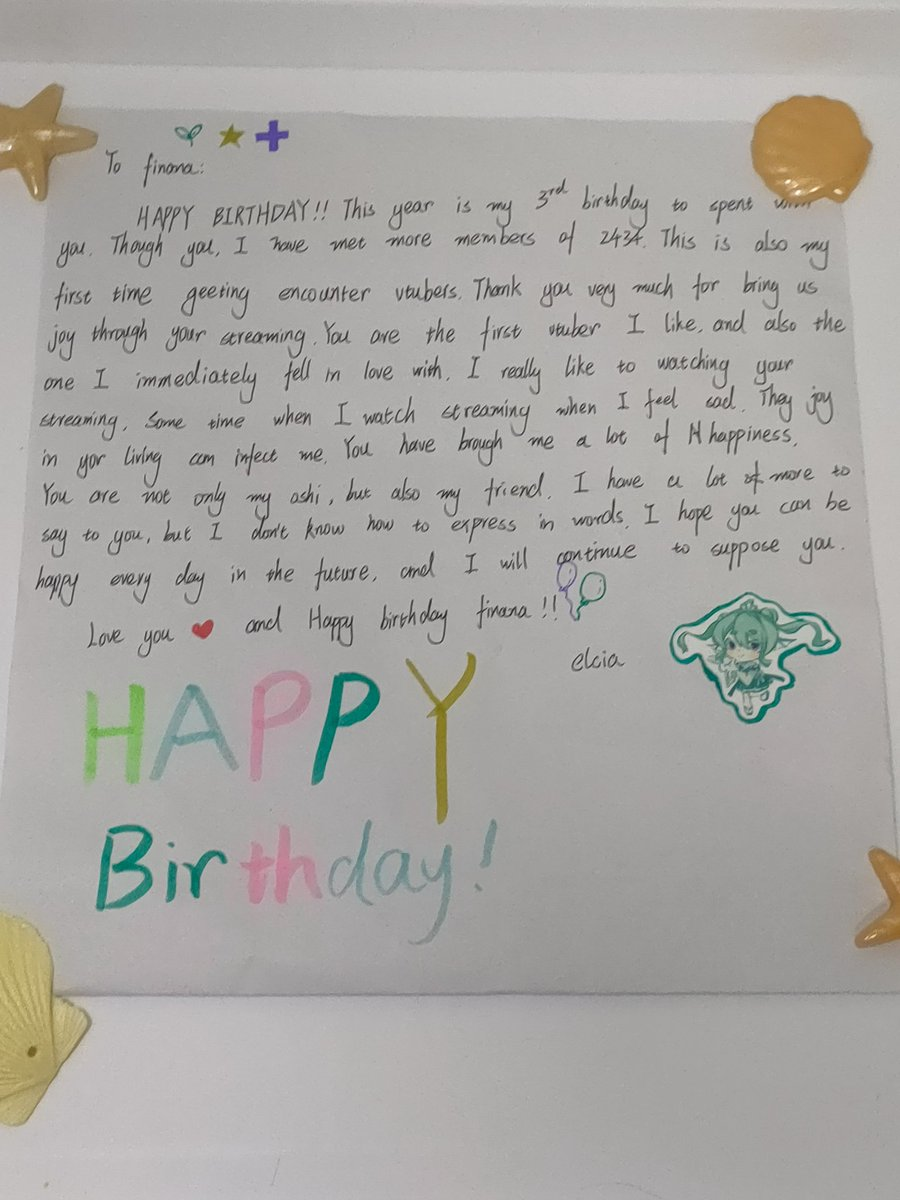 To finana:
HAPPY BIRTHDAY!! This year is my 3rd birthday to spent with
you. Though you, I have met more members of 2434. This is also my
first time geeting encounter vtubers. Thank you very much for bring us
joy through your streaming. You are the first vtuber I like, and also the
one I immediately fell in love with. I really like to watching your
streaming. Some time when I watch streaming when I feel sad. They joy
in yor living can infect me. You have brough me a lot of happiness.
You are not only my oshi, but also my friend. I have a lot of more to
say to you, but I don't know how to express in words. I hope you can be
happy every day in the future, and I will continue to suppose you.
Love you ❤ and Happy birthday finana!!
elcia
HAPPY
Birthday!